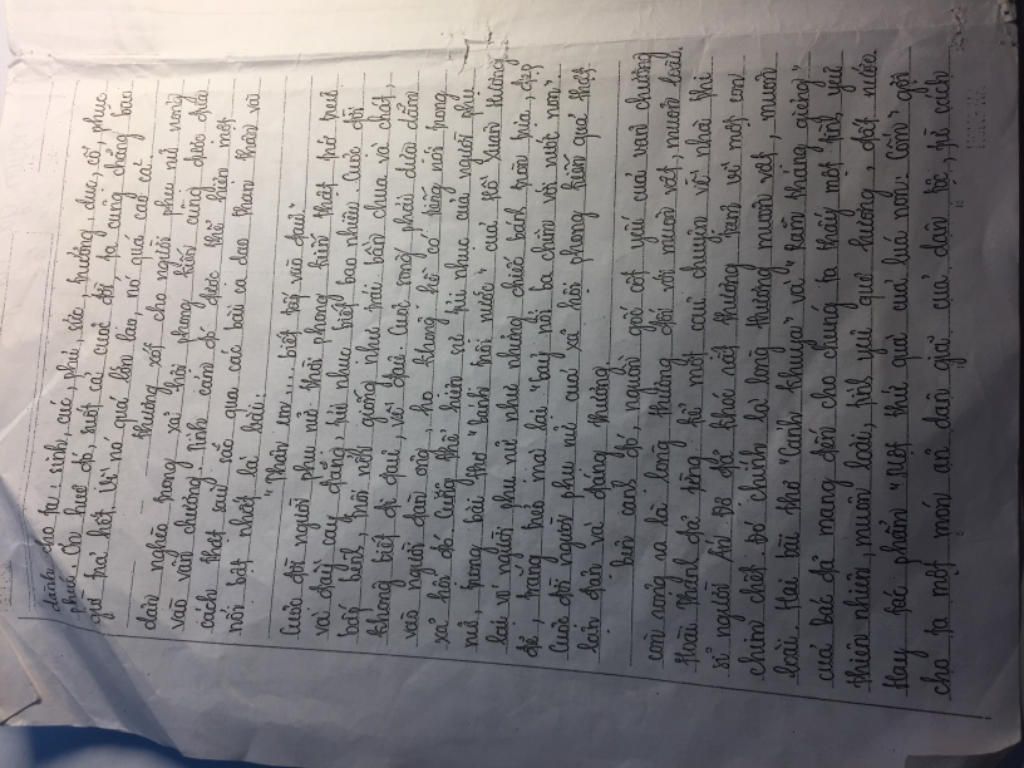 dành cho ta sinh, cực, phải, sức, hưởng, dục, cổ, phục
phúc. Ơn như đó, suốt cả cuộc đời, ta cũng chẳng bao
giờ trả hết. Vì nó quá lớn lao, nó quá cao cả.
thương xót cho người phụ nữ nông
dân nghèo trong xã hội phong kiến cũng được đưa
vào văn chương. Tình cảm đó được thể hiện một
cách thật sâu sắc qua các bài ca dao than thân và
nổi bật nhất là bài:
"Thân em..... biết tấp vào đâu"
Cuộc đời người phụ nữ thời phong kiến thật phó phú
và đầy cay đắng, tủi nhục biết bao nhiêu. Cuộc đời
bấp bênh, trôi nổi giống như trái bần chua và chát,
không biết đi đâu, về đâu. Cuộc sống phải dựa dẫm
vào người đàn ông, họ không hề có tiếng nói trong
xã hội. Đó cũng thể hiện sự tủi nhục của người phụ
nữ trong bài thơ "bánh trôi nước" của Hồ Xuân Hương.
Lại ví người phụ nữ như những chiếc bánh trôi vừa, đẹp
đẽ, trắng trẻo mà lại "bảy nổi ba chìm với nước non".
Cuộc đời người phụ nữ của xã hội phong kiến quả thật
lận đận và đáng thương.
bên cạnh đó, nguồn gốc cốt yếu của văn chương
còn rộng ra là lòng thương đối với muôn vật, muôn loài.
Hoài Thanh đã từng kể một câu chuyện về nhà thi
sĩ người Ấn Độ đã khóc nất thương tâm vì một con
chim chết. Đó chính là lòng thương muôn vật, muôn
loài. Hai bài thơ "Cảnh khuya" và "Rằm tháng giêng"
của bác đã mang đến cho chúng ta thấy một tình yêu
thiên nhiên, muôn loài, tình yêu quê hương, đất nước.
Hay tác phẩm "một thứ quà của lúa non: Cốm" gửi
cho ta một món ăn dân giã của dân tộc, giữ cách